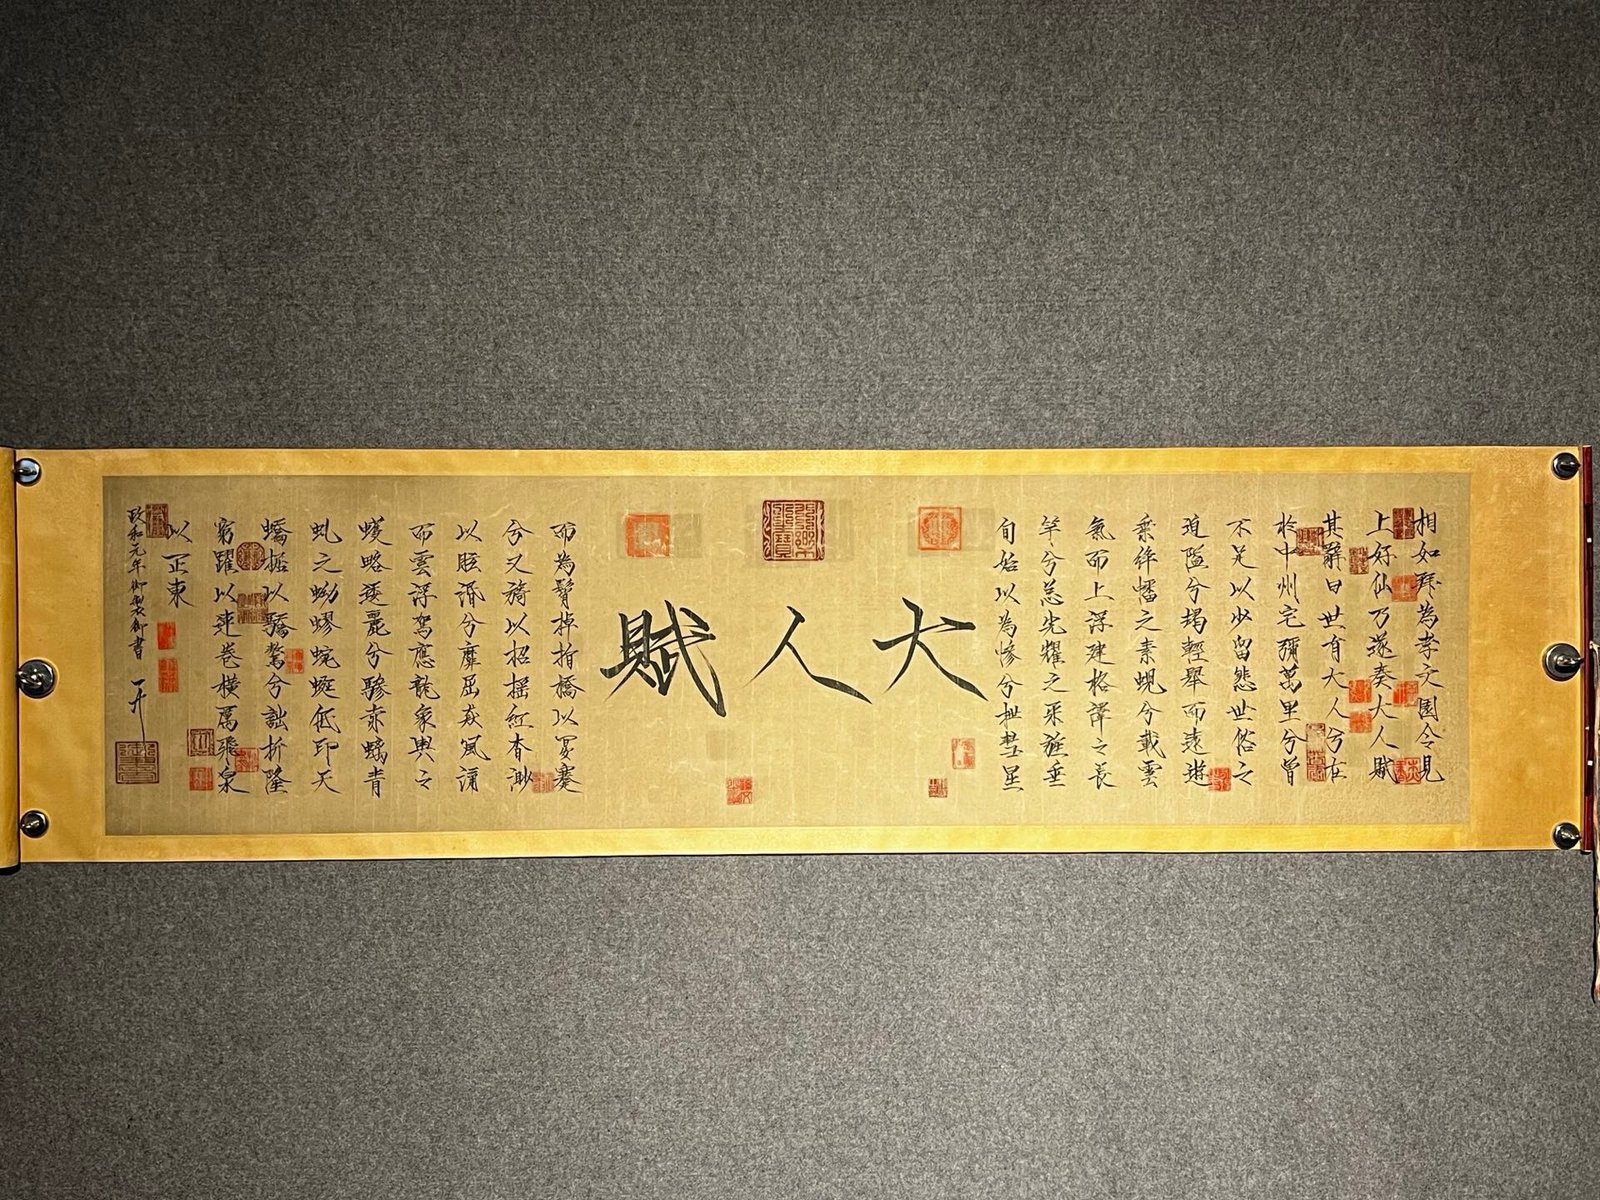 相如拜為孝文園令見
上好仙乃遂奏大人賦
其辭曰世有大人兮在
於中州宅彌萬里兮曾
不足以少留悲世俗之
迫隘兮朅輕舉而遠遊
乘絳幡之素蜺兮載雲
氣而上浮建格澤之長
竿兮总光耀之采旄垂
旬始以為幓兮抴彗星
大人賦
而為髾掉指橋以偃蹇
兮又猗以招搖紅杳渺
以眩湣兮猋風涌
而雲浮駕應龍象輿之
蠖略逶麗兮驂赤螭青
虬之蚴蟉蜿蜒低卬夭
蟜据以驕驁兮詘折隆
窮躍以連卷橫厲飛泉
以正東
政和元年御製御書